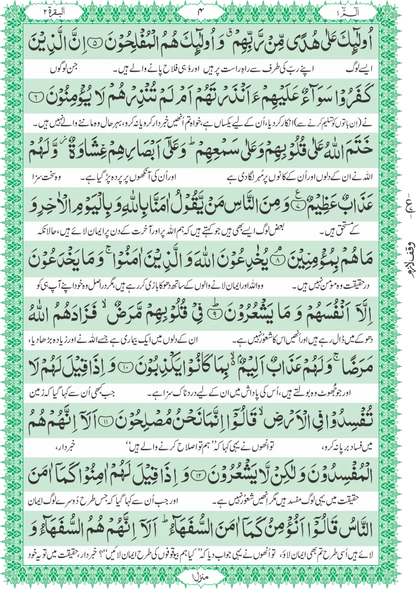 الٓمّٓ ۱ ۴ البقرة ۲
اُولٰٓئِكَ عَلٰى هُدًى مِّنْ رَّبِّهِمْ ۗ وَ اُولٰٓئِكَ هُمُ الْمُفْلِحُوْنَ ۝۵ اِنَّ الَّذِيْنَ
ایسے لوگ اپنے رب کی طرف سے راہِ راست پر ہیں اور وہی فلاح پانے والے ہیں۔ جن لوگوں
كَفَرُوْا سَوَآءٌ عَلَيْهِمْ ءَاَنْذَرْتَهُمْ اَمْ لَمْ تُنْذِرْهُمْ لَا يُؤْمِنُوْنَ ۝۶
نے (ان باتوں کو تسلیم کرنے سے) انکار کر دیا، اُن کے لیے یکساں ہے، خواہ تم اُنھیں خبردار کرو یا نہ کرو، بہرحال وہ ماننے والے نہیں ہیں۔
خَتَمَ اللّٰهُ عَلٰى قُلُوْبِهِمْ وَ عَلٰى سَمْعِهِمْ ؕ وَ عَلٰٓى اَبْصَارِهِمْ غِشَاوَةٌ ؗ وَّ لَهُمْ
اللہ نے ان کے دلوں اور ان کے کانوں پر مُہر لگا دی ہے اور اُن کی آنکھوں پر پردہ پڑ گیا ہے۔ وہ سخت سزا
عَذَابٌ عَظِيْمٌ ۝۷ وَ مِنَ النَّاسِ مَنْ يَّقُوْلُ اٰمَنَّا بِاللّٰهِ وَ بِالْيَوْمِ الْاٰخِرِ وَ
کے مستحق ہیں۔ بعض لوگ ایسے بھی ہیں جو کہتے ہیں کہ ہم اللہ پر اور آخرت کے دن پر ایمان لائے ہیں، حالانکہ
مَا هُمْ بِمُؤْمِنِيْنَ ۝۸ يُخٰدِعُوْنَ اللّٰهَ وَ الَّذِيْنَ اٰمَنُوْا ۚ وَ مَا يَخْدَعُوْنَ
درحقیقت وہ مومن نہیں ہیں۔ وہ اللہ اور ایمان لانے والوں کے ساتھ دھوکا بازی کر رہے ہیں، مگر دراصل وہ خود اپنے آپ ہی کو
اِلَّاۤ اَنْفُسَهُمْ وَ مَا يَشْعُرُوْنَ ۝۹ فِيْ قُلُوْبِهِمْ مَّرَضٌ ۙ فَزَادَهُمُ اللّٰهُ
دھوکے میں ڈال رہے ہیں اور انھیں اس کا شعور نہیں ہے۔ ان کے دلوں میں ایک بیماری ہے جسے اللہ نے اور زیادہ بڑھا دیا،
مَرَضًا ۚ وَ لَهُمْ عَذَابٌ اَلِيْمٌۢ ۙ بِمَا كَانُوْا يَكْذِبُوْنَ ۝۱۰ وَ اِذَا قِيْلَ لَهُمْ لَا
اور جو جھوٹ وہ بولتے ہیں، اُس کی پاداش میں ان کے لیے دردناک سزا ہے۔ جب کبھی اُن سے کہا گیا کہ زمین
تُفْسِدُوْا فِي الْاَرْضِ ۙ قَالُوْۤا اِنَّمَا نَحْنُ مُصْلِحُوْنَ ۝۱۱ اَلَاۤ اِنَّهُمْ هُمُ
میں فساد برپا نہ کرو، تو اُنھوں نے یہی کہا کہ ”ہم تو اصلاح کرنے والے ہیں“ خبردار،
الْمُفْسِدُوْنَ وَ لٰكِنْ لَّا يَشْعُرُوْنَ ۝۱۲ وَ اِذَا قِيْلَ لَهُمْ اٰمِنُوْا كَمَاۤ اٰمَنَ
حقیقت میں یہی لوگ مفسد ہیں مگر انھیں شعور نہیں ہے۔ اور جب اُن سے کہا گیا کہ جس طرح دُوسرے لوگ ایمان
النَّاسُ قَالُوْۤا اَنُؤْمِنُ كَمَاۤ اٰمَنَ السُّفَهَآءُ ؕ اَلَاۤ اِنَّهُمْ هُمُ السُّفَهَآءُ وَ
لائے ہیں اُسی طرح تم بھی ایمان لاؤ، تو اُنھوں نے یہی جواب دیا کہ ”کیا ہم بیوقوفوں کی طرح ایمان لائیں“؟ خبردار، حقیقت میں تو یہ خود
وقف لازم
منزل ۱